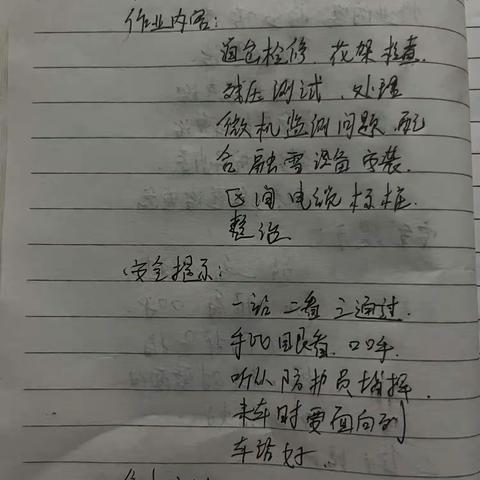 作业内容:
道岔检修、花架检查.
残压测试、处理
微机监测问题.配
合融雪设备安装.
区间电缆标桩.
整治
安全提示:
一站二看三通过.
手比眼看、口呼.
听从防护员指挥.
来车时要面向列
车站好.